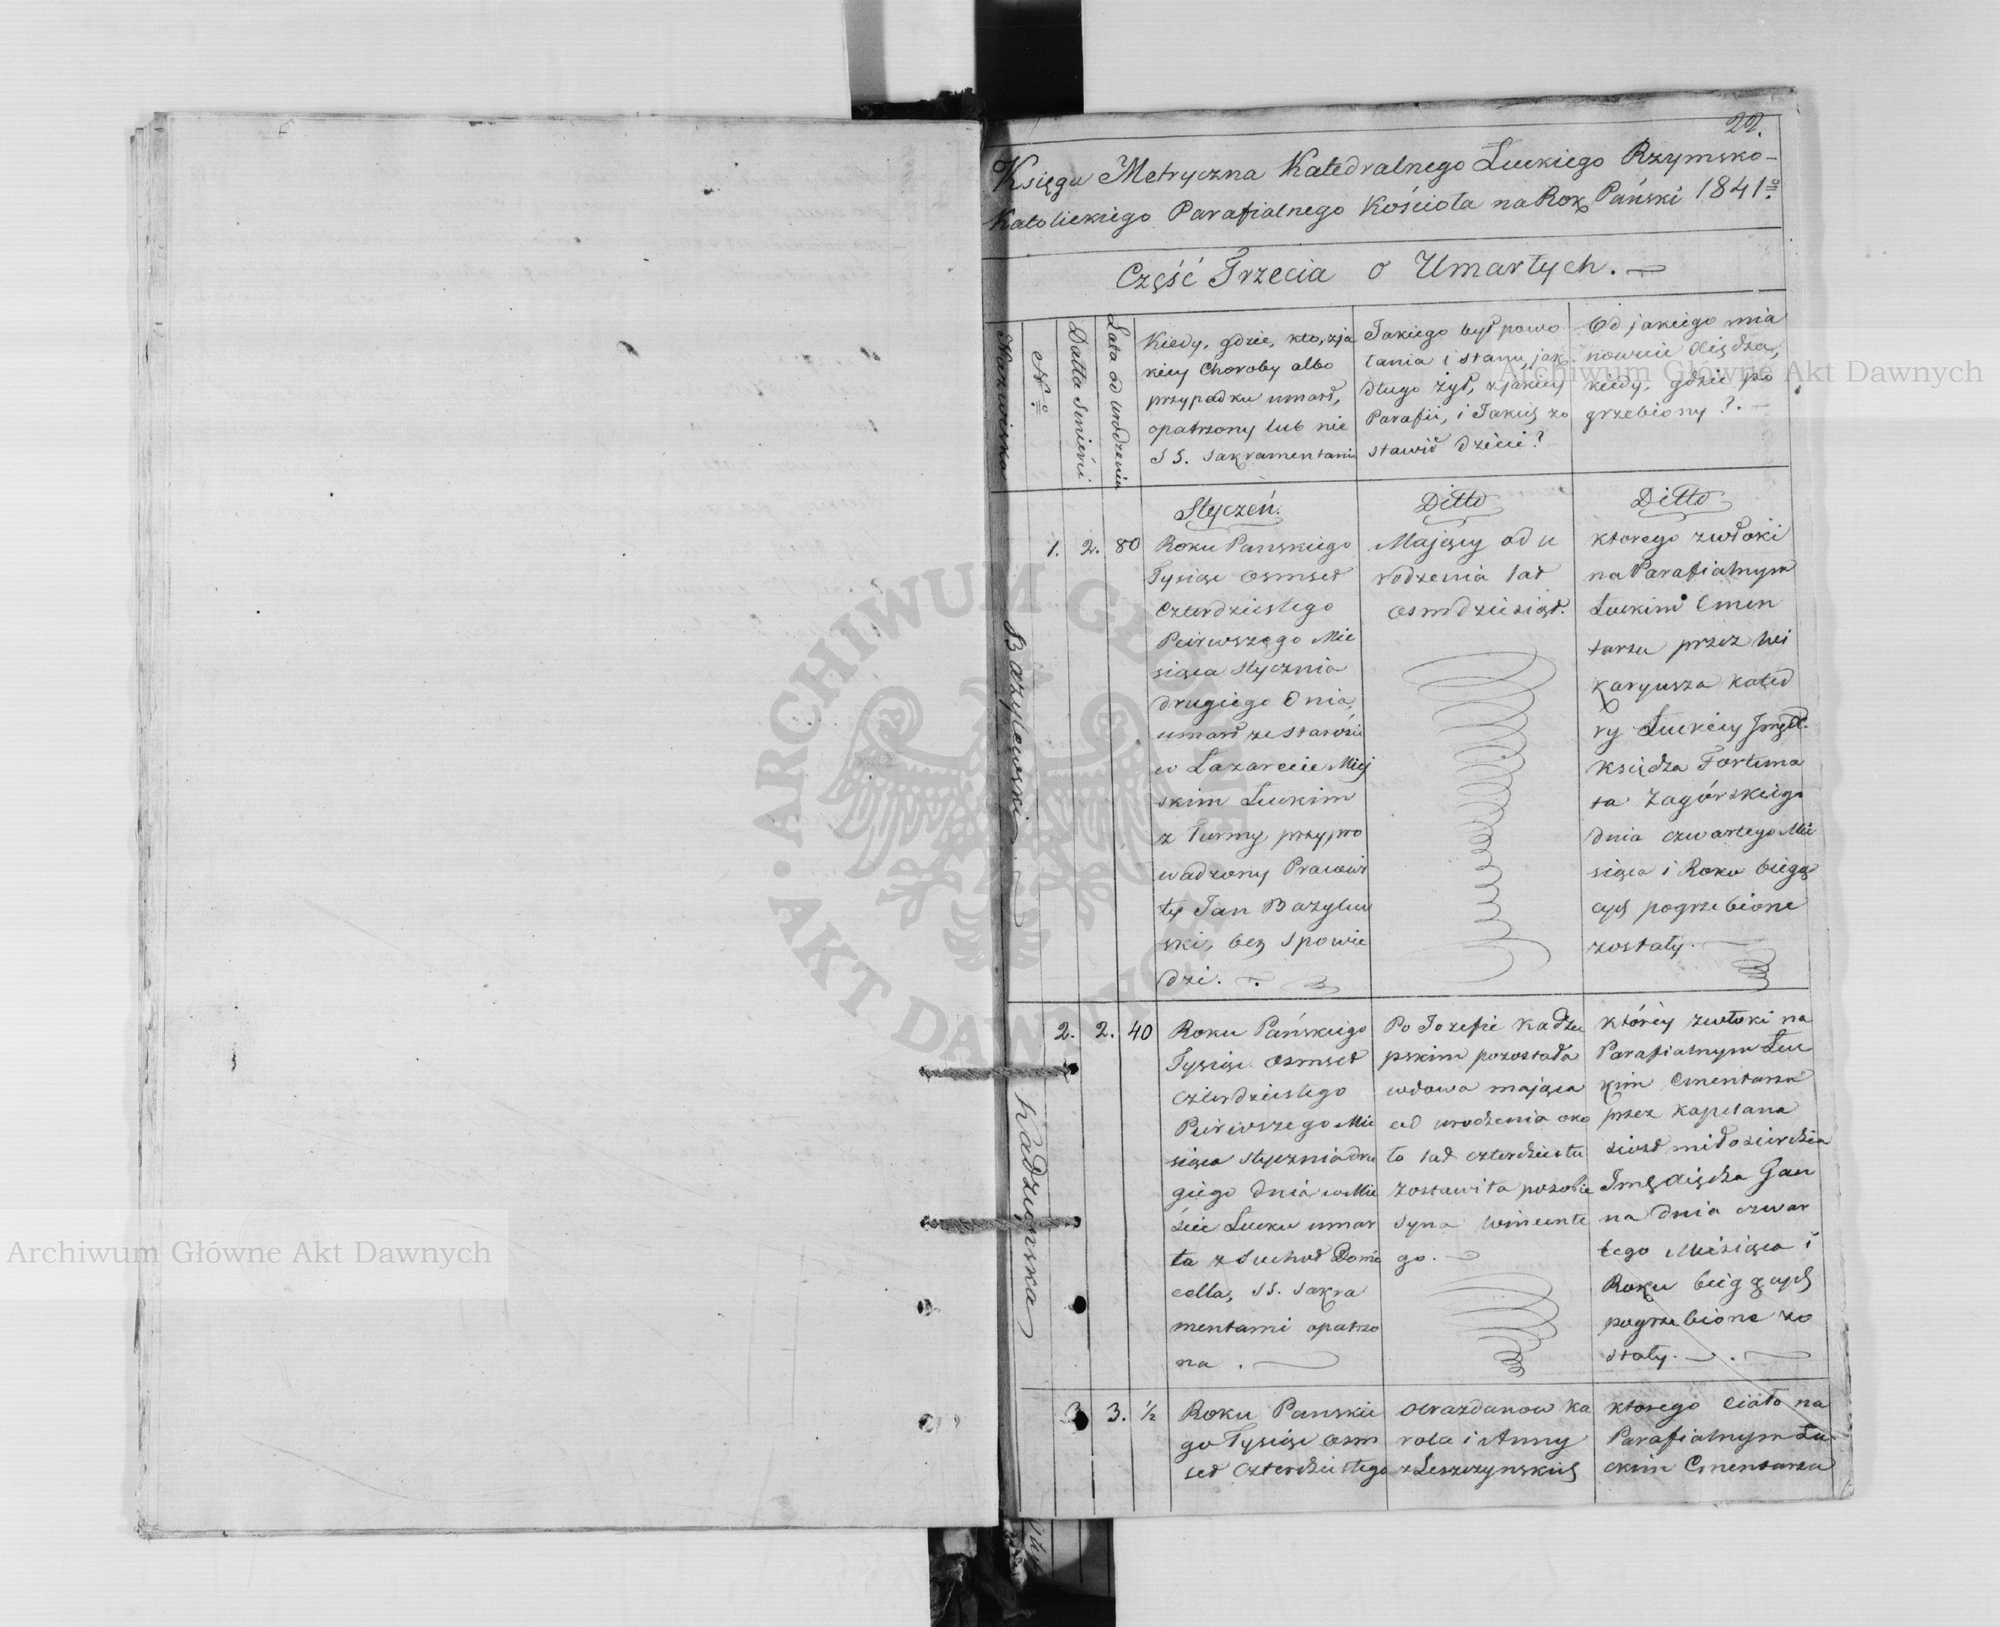 22.
Księga Metryczna Katedralnego Łuckiego Rzymsko-
Katolickiego Parafialnego Kościoła na Rok Pański 1841º.
Część Trzecia o Umarłych.
Nazwiska
Nº
Datta Smierci
Lata od Urodzenia
Kiedy, gdzie, kto, z ja
kiey Choroby albo
przypadku umarł,
opatrzony lub nie
SS. Sakramentami
Jakiego był powo
łania i stanu, jak
długo żył, z jakiey
Parafii, i Jakieś zo
stawił dzieci?
Od jakiego mia
nowicie Xiędza,
kiedy, gdzie po
grzebiony?.
Styczeń.
Ditto
Ditto
Bazylewski
1.
2.
80
Roku Panskiego
Tysiąc osmset
Czterdziestego
Peirwszego Mie
siąca Stycznia
drugiego Dnia,
umarł ze starości
w Lazarecie Miej
skim Łuckim
z Turmy przypro
wadzony Pracowi
ty Jan Bazylew
ski, bez Spowie
dzi.
Maiący od u
rodzenia lat
osmdziesiąt.
ktorego zwłoki
na Parafialnym
Łuckim Cmen
tarzu przez Wi
karyusza Kated
ry Łuckiey
Księdza Fortuna
ta Zagórskiego
dnia czwartego Mie
siąca i Roku bieżą
cych pogrzebione
zostały.
Kadzupska
2.
2.
40
Roku Pańskiego
Tysiąc osmset
Czterdziestego
Peirwszego Mie
siąca Stycznia dru
giego dnia w Mie
ście Łucku umar
ła z Suchot Domi
cella, SS. Sakra
mentami opatrzo
na.
Po Jozefie Kadzu
pskim pozostała
wdowa maiąca
od urodzenia oko
ło lat czterdziestu
zostawiła po sobie
syna Wincente
go.
którey zwłoki na
Parafialnym Łuc
kim Cmentarzu
przez Kapelana
Siost miłosierdzia
Jmę Xiędza Gau
na dnia czwar
tego Miesiąca i
Roku bieżących
pogrzebione zo
stały.
3
3.
½
Roku Panskie
go Tysiąc osm
set Czterdziestego
Obrazdanow Ka
rola i Anny
z Leszczynskich
ktorego Ciało na
Parafialnym Łu-
ckim Cmentarzu
Archiwum Główne Akt Dawnych
Archiwum Główne Akt Dawnych
ARCHIWUM GŁÓWNE · AKT DAWNYCH ·